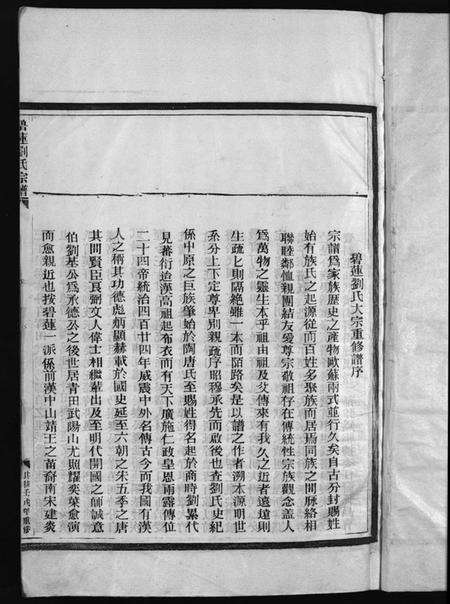 碧蓮劉氏大宗重修譜序
宗譜為家族歷史之產物歐蘇兩式並行久矣自古分封賜姓
始有族氏之起源從而百姓多聚族而居焉同族之間脉絡相
聯睦鄰恤親團結友愛尊宗敬祖存在傳統性宗族觀念蓋人
為萬物之靈生本乎祖由祖及父傳來有我久之近者遠遠則
生疏匕則隔絶雖一本而陌路矣是以譜之作者溯本源明世
系分上下定尊卑別親疏序昭穆承先而啟後也查劉氏史紀
係中原之巨族肇始於陶唐氏至賜姓得名起於商時劉累代
見蕃衍迨漢高祖起布衣而有天下廣施仁政皇恩雨露傳位
二十四帝統治四百廿四年威震中外名傳古今而我國有漢
人之稱其功德彪炳顯赫載於國史延至六朝之宋五季之唐
其間賢臣良弼文人偉士相繼輩出及至明代開國之師誠意
伯劉基公為承德公之後世居青田武陽山尤照耀奕葉愈演
而愈親近也按碧蓮一派係前漢中山靖王之苗裔南宋建炎
碧蓮劉氏宗譜
壬戌年重修